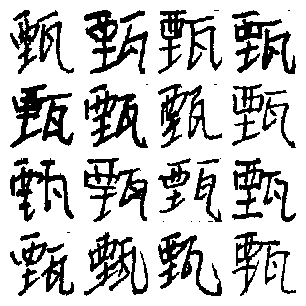 甄甄甄甄
甄甄甄甄
甄甄甄甄
甄甄甄甄